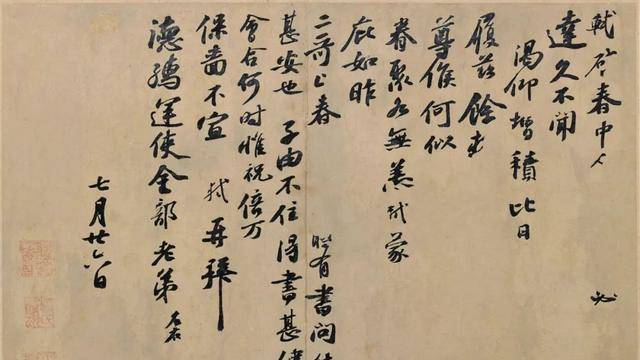 軾啓春中人必
達久不聞
渴仰增積比日
履茲餘
尊候何似
眷聚各無恙軾蒙
庇如昨
二哥上春時有書問
甚安也子由不住得書甚
會合何時惟祝倍万
保嗇不宣軾再拜
德孺運使金部老弟
七月廿六日